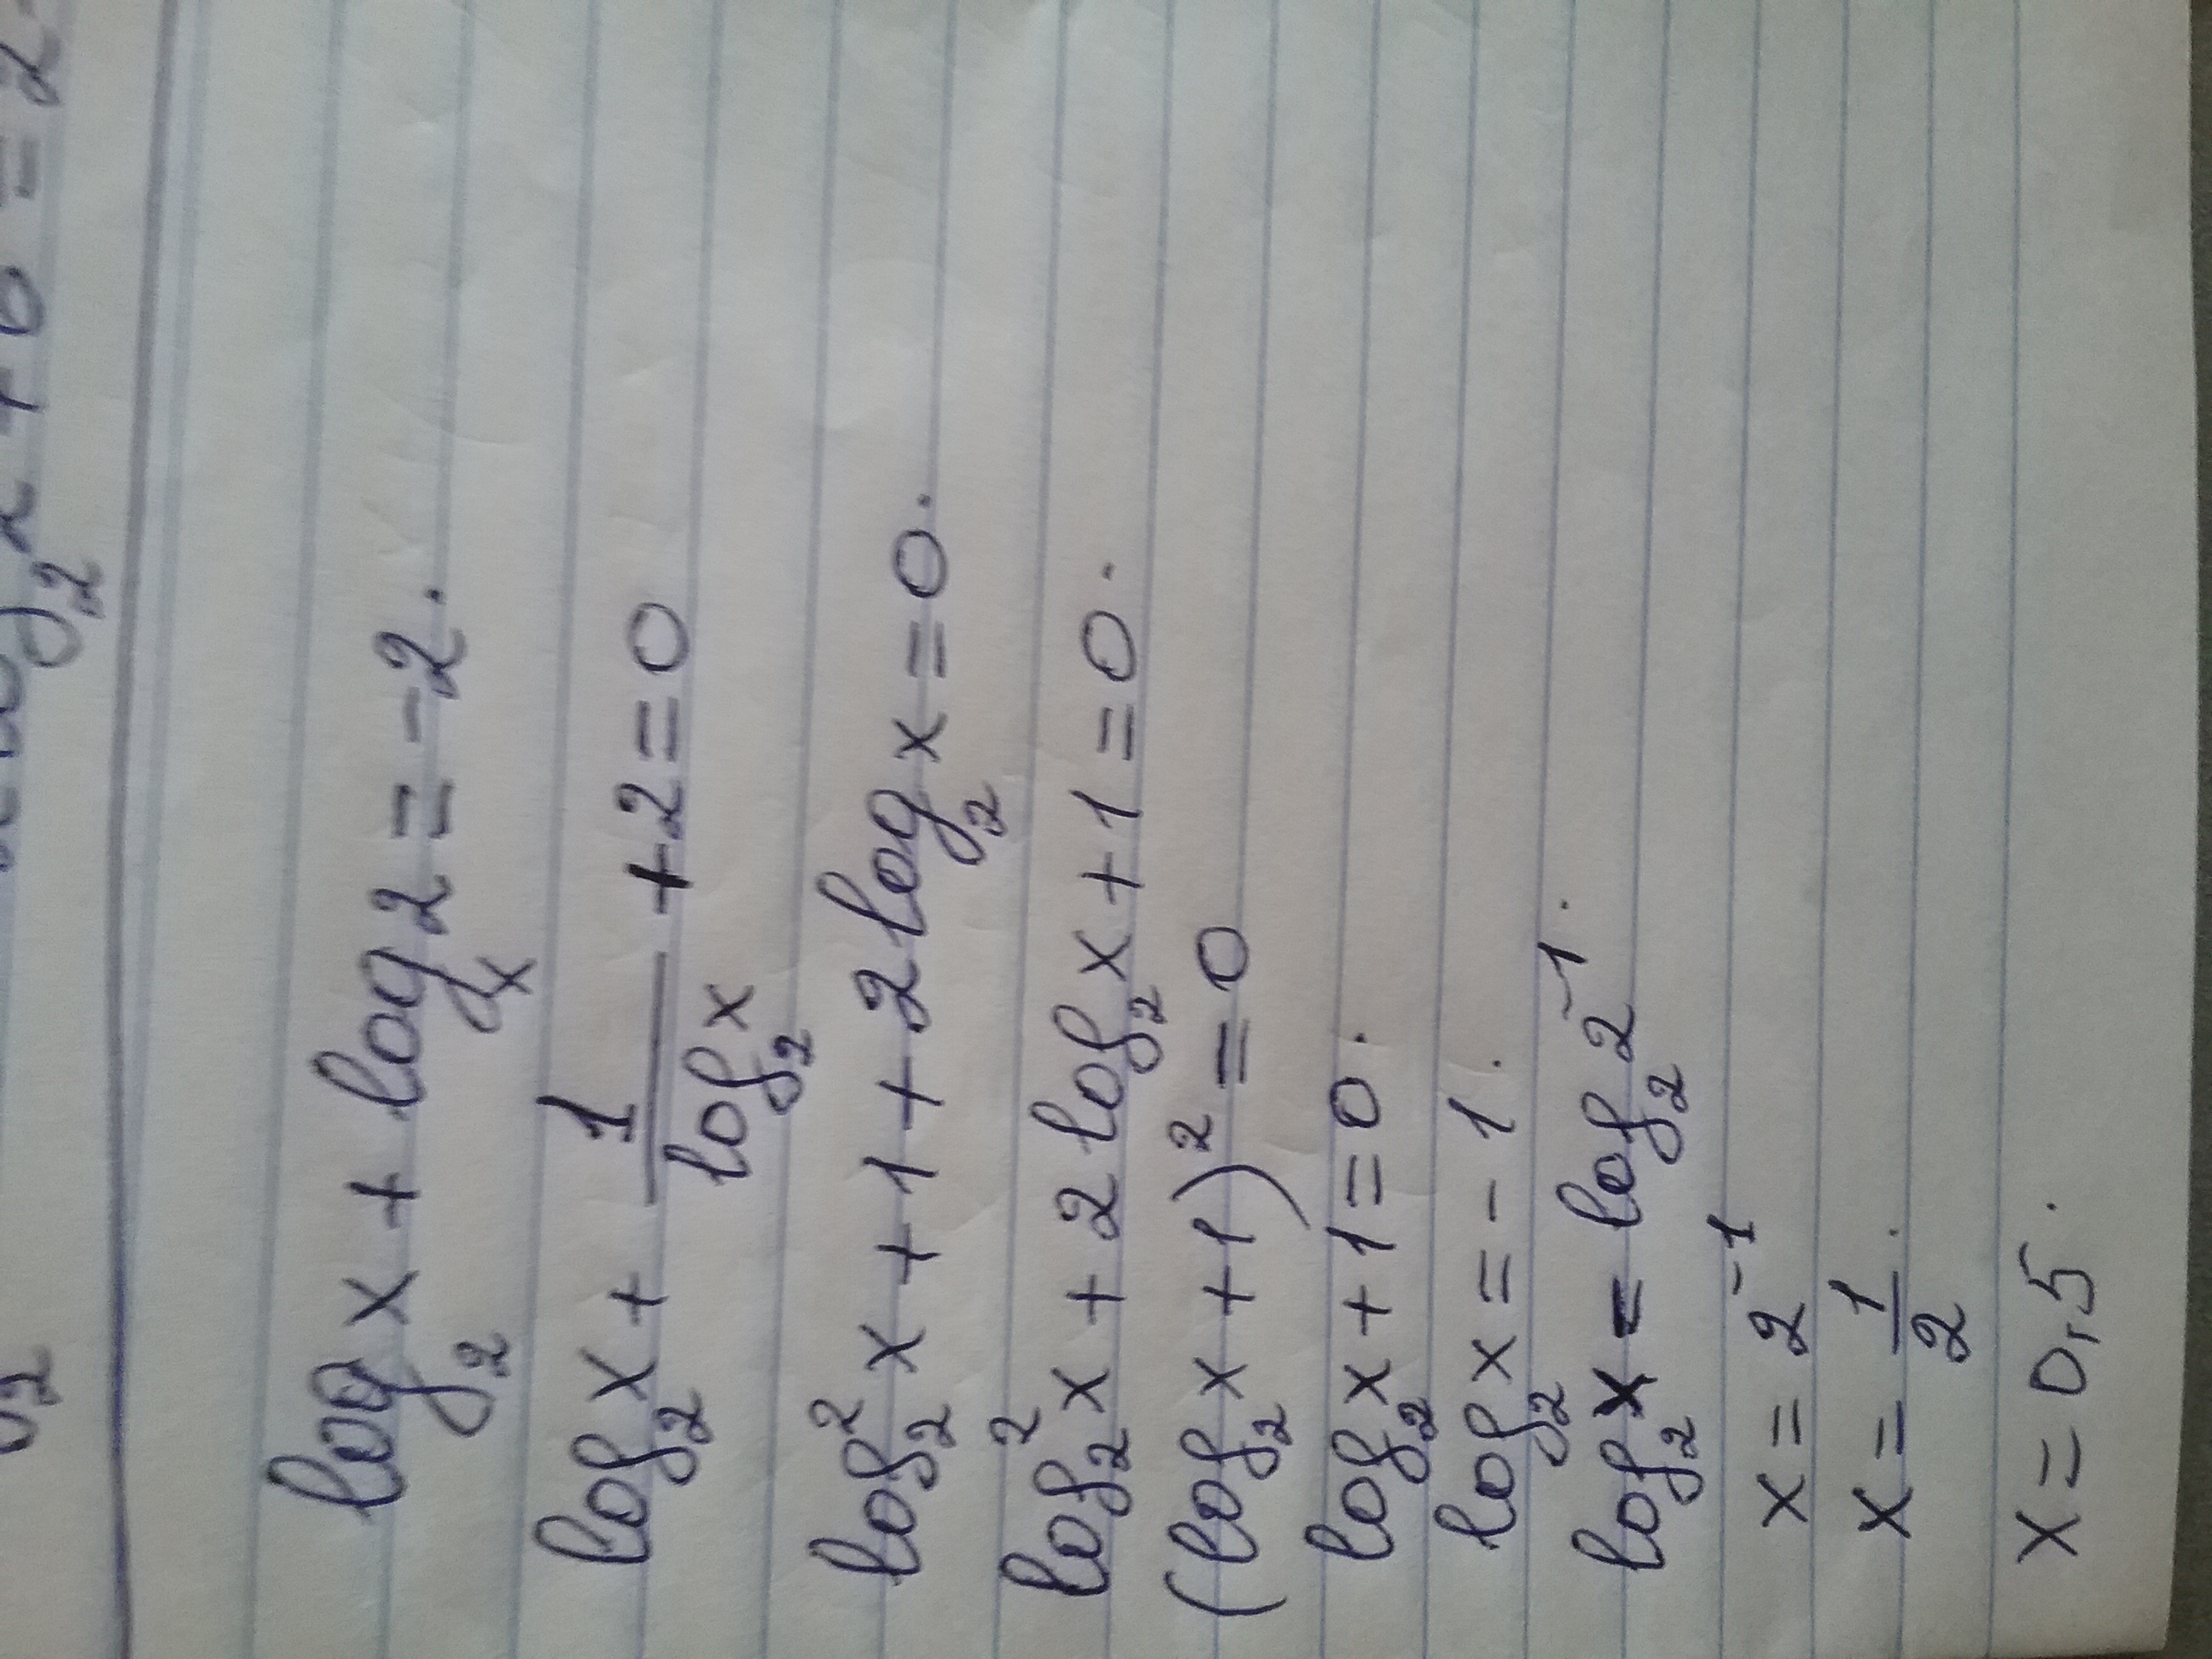 log₂x + logₓ2 = -2.
log₂x + 1/log₂x + 2 = 0
log₂²x + 1 + 2log₂x = 0.
log₂²x + 2log₂x + 1 = 0.
(log₂x + 1)² = 0
log₂x + 1 = 0.
log₂x = -1.
log₂x = log₂2⁻¹.
x = 2⁻¹
x = 1/2.
x = 0,5.